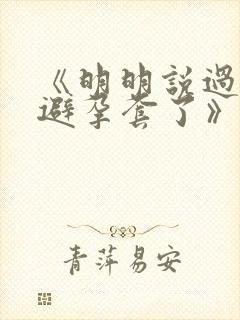 《明明說過
避孕套了》
青萍易安